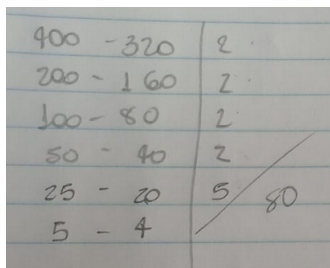 400 - 320 | 2
200 - 160 | 2
100 - 80 | 2
50 - 40 | 2
25 - 20 | 5 / 80
5 - 4